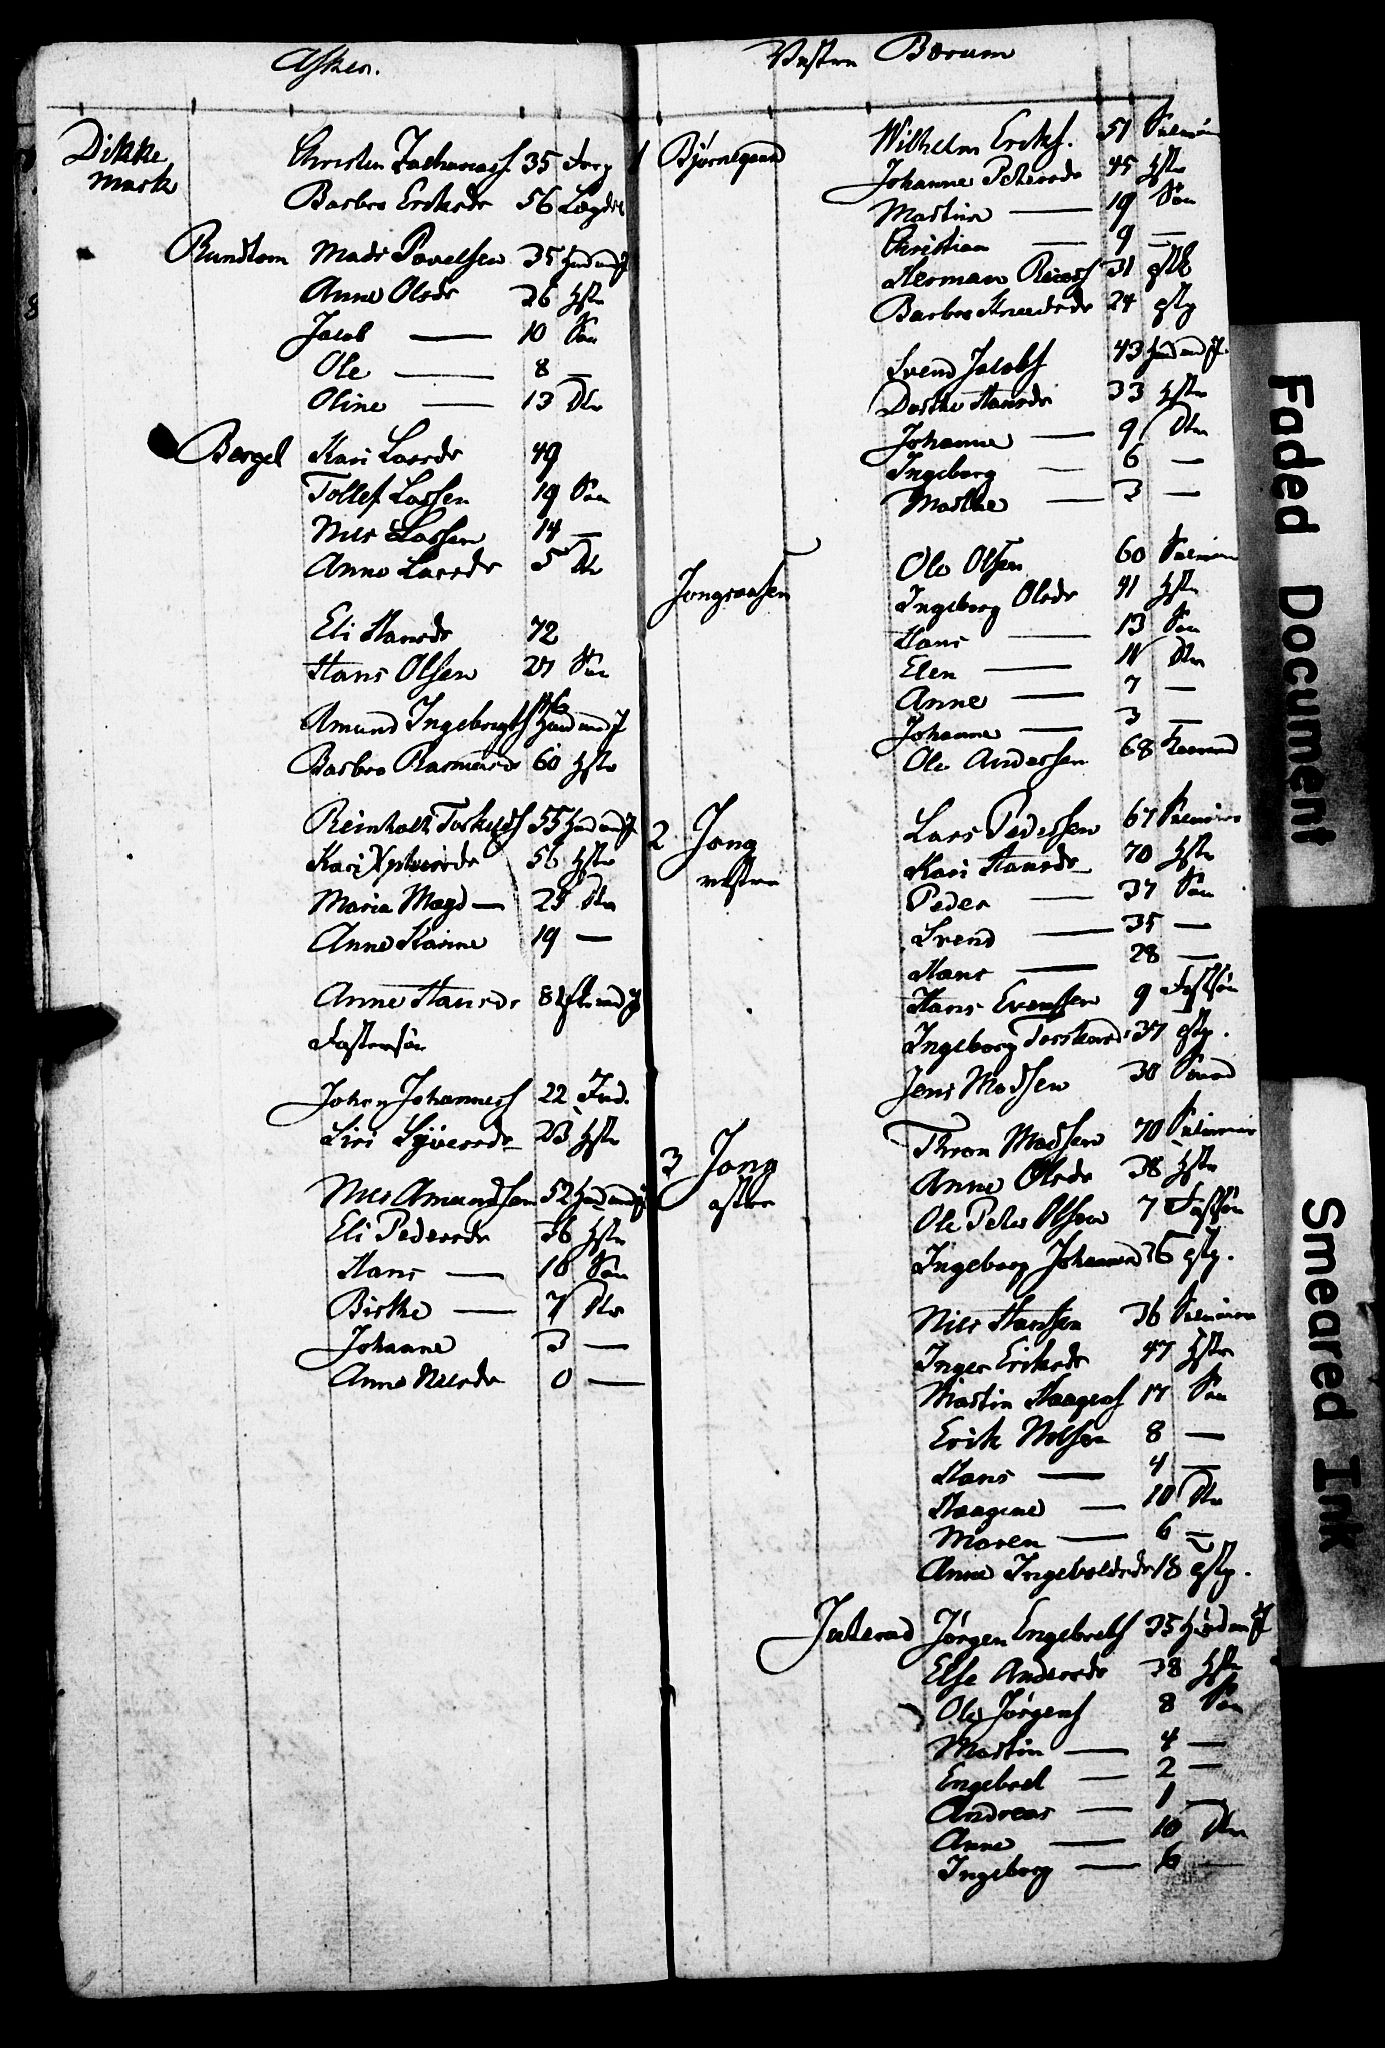 Asker.
Dikke
mark
Christen Zachariass 35 Forp
Barbro Ericksdr 56 Lægds
Rundtom Mads Povelsen 35 Huusmd mJ
Anne Olsdr 36 Hstr
Jacob — 10 Søn
Ole — 8 —
Oline — 13 Dtr
Berget Kari Larsdr 49
Tollef Larsen 19 Søn
Niels Larsen 14 —
Anne Larsdr 5 Dtr
Eli Hansdr 72
Hans Olsen 27 Søn
Amund Ingebrigts 46 Huusmd mJ
Barbro Rasmusdr 60 Hstr
Reinholt Torkilds 55 Huusmd mJ
Kari Syversdr 56 Hstr
Maria Magd — 25 Dtr
Anne Karine 19 —
Anne Hansdr 81
Fostersøn
John Johanness 22 Ind.
Siri Syversdr 23 Hstr
Niels Amundsen 52 Huusmd mJ
Eli Pedersdr 36 Hstr
Hans — 10 Søn
Birthe — 7 Dtr
Johanne 3 —
Anne Nielsdr 0 —
Vestre Bærum
1 Bjørnegaard Wilhelm Ericks. 51 Selveier
Johanne Petersdr 45 Hstr
Martin — 19 Søn
Christian — 9 —
Herman 31
Barbro Knudsdr 24 pstg
Svend Jacobs 43 Huusmd mJ
Dorthe Hansdr 33 Hstr
Johanne — 9 Dtr
Ingeborg — 6 —
Marthe — 3 —
Jongsaasen Ole Olsen 60 Selveier
Ingeborg Olsdr 41 Hstr
Hans — 13 Søn
Elen — 11 Dtr
Anne — 7 —
Johanne — 3 —
Ole Andersen 68
2 Jong
vestre
Lars Pedersen 67 Selveier
Kari Hansdr 70 Hstr
Peder — 37 Søn
Svend — 35 —
Hans — 28 —
Hans Evensen 9 Fostsøn
Ingeborg 37 pstg.
Jens Madsen 30
3 Jong
østre
Thron Madsen 70 Selveier
Anne Olsdr 38 Hstr
Ole Peter Olsen 7 Fostsøn
Ingeborg Johannesd 36 pstg.
Niels Hansen 36 Selveier
Inger Ericksdr 47 Hstr
Martin Haagens 17 Søn
Erik Nielsen 8 —
Hans — 4 —
Haagine — 10 Dtr
Maren — 6 —
Anne Ingeborgsdr 18 pstg.
Juterud Jørgen Engebrets 35 Huusmd mJ
Else Andersdr 38 Hstr
Ole Jørgens 8 Søn
Martin — 4 —
Engebret — 2 —
Andreas — 1 —
Anne — 10 Dtr
Ingeborg — 6 —
Faded Document
Smeared Ink